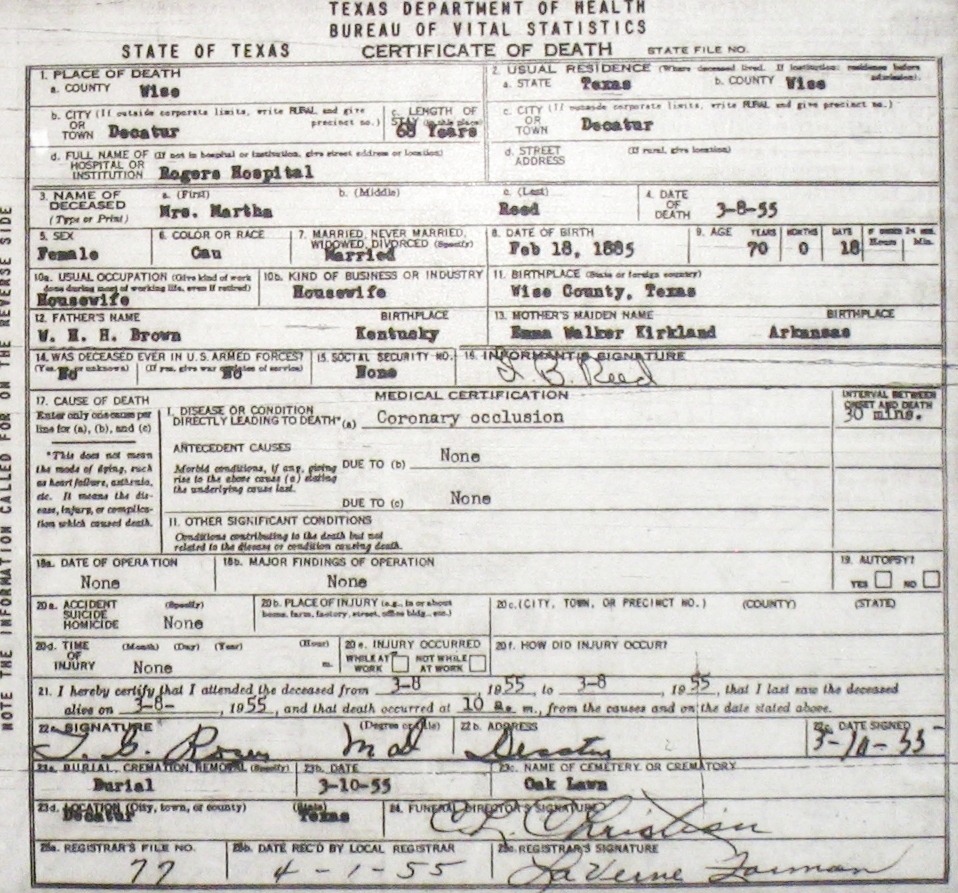 TEXAS DEPARTMENT OF HEALTH
BUREAU OF VITAL STATISTICS
STATE OF TEXAS CERTIFICATE OF DEATH STATE FILE NO.
1. PLACE OF DEATH
a. COUNTY Wise
2. USUAL RESIDENCE (Where deceased lived. If institution: residence before admission).
a. STATE Texas b. COUNTY Wise
b. CITY (If outside corporate limits, write RURAL and give precinct no.)
OR
TOWN Decatur
c. LENGTH OF
STAY (in this place)
68 Years
c. CITY (If outside corporate limits, write RURAL and give precinct no.)
OR
TOWN Decatur
d. FULL NAME OF (If not in hospital or institution, give street address or location)
HOSPITAL OR
INSTITUTION Rogers Hospital
d. STREET (If rural, give location)
ADDRESS
3. NAME OF
DECEASED
(Type or Print)
a. (First) b. (Middle) c. (Last)
Mrs. Martha Reed
4. DATE
OF
DEATH 3-8-55
5. SEX
Female
6. COLOR OR RACE
Cau
7. MARRIED, NEVER MARRIED,
WIDOWED, DIVORCED (Specify)
Married
8. DATE OF BIRTH
Feb 18, 1885
9. AGE YEARS MONTHS DAYS IF UNDER 24 HRS.
Hours Min.
70 0 18
10a. USUAL OCCUPATION (Give kind of work
done during most of working life, even if retired)
Housewife
10b. KIND OF BUSINESS OR INDUSTRY
Housewife
11. BIRTHPLACE (State or foreign country)
Wise County, Texas
12. FATHER'S NAME BIRTHPLACE
W. H. H. Brown Kentucky
13. MOTHER'S MAIDEN NAME BIRTHPLACE
Emma Walker Kirkland Arkansas
14. WAS DECEASED EVER IN U.S. ARMED FORCES?
(Yes, no, or unknown) (If yes, give war or dates of service)
No No
15. SOCIAL SECURITY NO.
None
16. INFORMANT'S SIGNATURE
B. Reed
MEDICAL CERTIFICATION
17. CAUSE OF DEATH
Enter only one cause per
line for (a), (b), and (c)
*This does not mean
the mode of dying, such
as heart failure, asthenia,
etc. It means the dis-
ease, injury, or complica-
tion which caused death.
I. DISEASE OR CONDITION
DIRECTLY LEADING TO DEATH* (a) Coronary occlusion
INTERVAL BETWEEN
ONSET AND DEATH
30 mins.
ANTECEDENT CAUSES
Morbid conditions, if any, giving
rise to the above cause (a) stating
the underlying cause last.
DUE TO (b) None
DUE TO (c) None
II. OTHER SIGNIFICANT CONDITIONS
Conditions contributing to the death but not
related to the disease or condition causing death.
18a. DATE OF OPERATION
None
18b. MAJOR FINDINGS OF OPERATION
None
19. AUTOPSY?
YES NO
20a. ACCIDENT (Specify)
SUICIDE
HOMICIDE None
20b. PLACE OF INJURY (e.g., in or about
home, farm, factory, street, office bldg., etc.)
20c. (CITY, TOWN, OR PRECINCT NO.) (COUNTY) (STATE)
20d. TIME (Month) (Day) (Year) (Hour)
OF
INJURY None m.
20e. INJURY OCCURRED
WHILE AT
WORK
NOT WHILE
AT WORK
20f. HOW DID INJURY OCCUR?
21. I hereby certify that I attended the deceased from 3-8, 1955, to 3-8, 1955, that I last saw the deceased
alive on 3-8-, 1955, and that death occurred at 10 a. m., from the causes and on the date stated above.
22a. SIGNATURE (Degree or title)
Rogers MD
22b. ADDRESS
Decatur
22c. DATE SIGNED
3-10-55
23a. BURIAL, CREMATION, REMOVAL (Specify)
Burial
23b. DATE
3-10-55
23c. NAME OF CEMETERY OR CREMATORY
Oak Lawn
23d. LOCATION (City, town, or county) (State)
Decatur Texas
24. FUNERAL DIRECTOR'S SIGNATURE
C. L. Christian
25a. REGISTRAR'S FILE NO.
77
25b. DATE REC'D BY LOCAL REGISTRAR
4-1-55
25c. REGISTRAR'S SIGNATURE
LaVerne Forman
NOTE THE INFORMATION CALLED FOR ON THE REVERSE SIDE